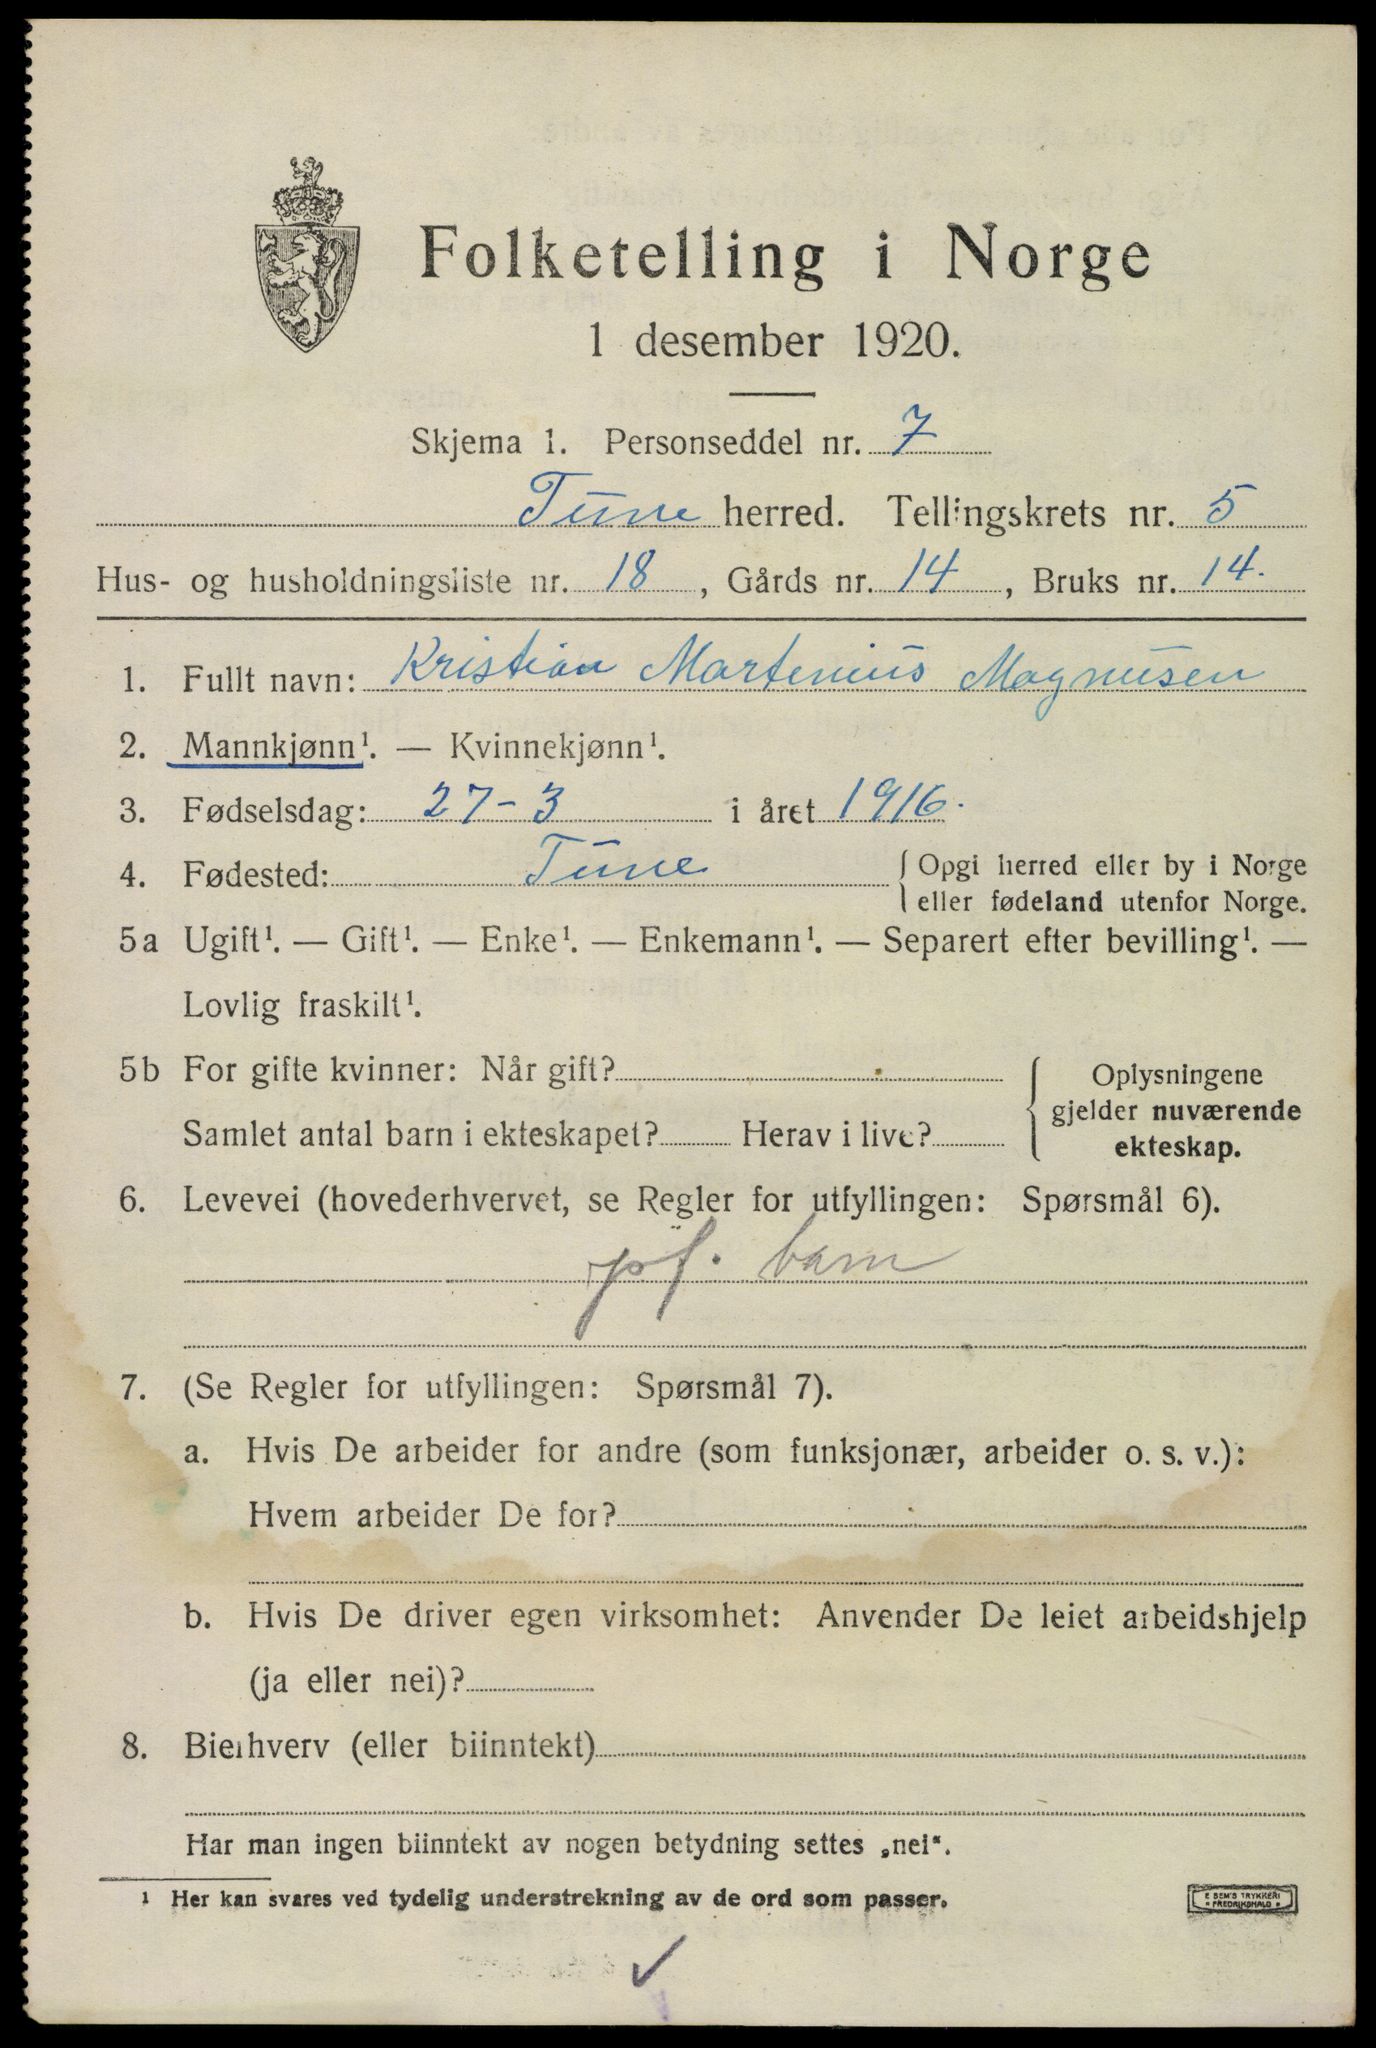 Folketelling i Norge
1 desember 1920.
Skjema 1. Personseddel nr. 7
Tune herred. Tellingskrets nr. 5
Hus- og husholdningsliste nr. 18, Gårds nr. 14, Bruks nr. 14.
1. Fullt navn: Kristian Martenius Magnusen
2. Mannkjønn¹. — Kvinnekjønn¹.
3. Fødselsdag: 27-3 i året 1916.
4. Fødested: Tune { Opgi herred eller by i Norge
eller fødeland utenfor Norge.
5a Ugift¹. — Gift¹. — Enke¹. — Enkemann¹. — Separert efter bevilling¹. —
Lovlig fraskilt¹.
5b For gifte kvinner: Når gift?
Samlet antal barn i ekteskapet? Herav i live?
{ Oplysningene
gjelder nuværende
ekteskap.
6. Levevei (hovederhvervet, se Regler for utfyllingen: Spørsmål 6).
pf. barn
7. (Se Regler for utfyllingen: Spørsmål 7).
a. Hvis De arbeider for andre (som funksjonær, arbeider o. s. v.):
Hvem arbeider De for?
b. Hvis De driver egen virksomhet: Anvender De leiet arbeidshjelp
(ja eller nei)?
8. Bierhverv (eller biinntekt)
Har man ingen biinntekt av nogen betydning settes „nei“.
¹ Her kan svares ved tydelig understrekning av de ord som passer.
E SEM'S TRYKKERI
* FREDRIKSHALD *